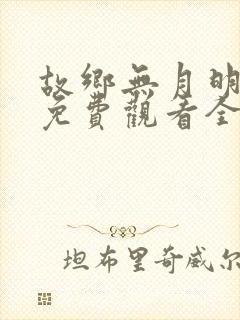 故鄉無月明
免費觀看全
坦布里奇威尔